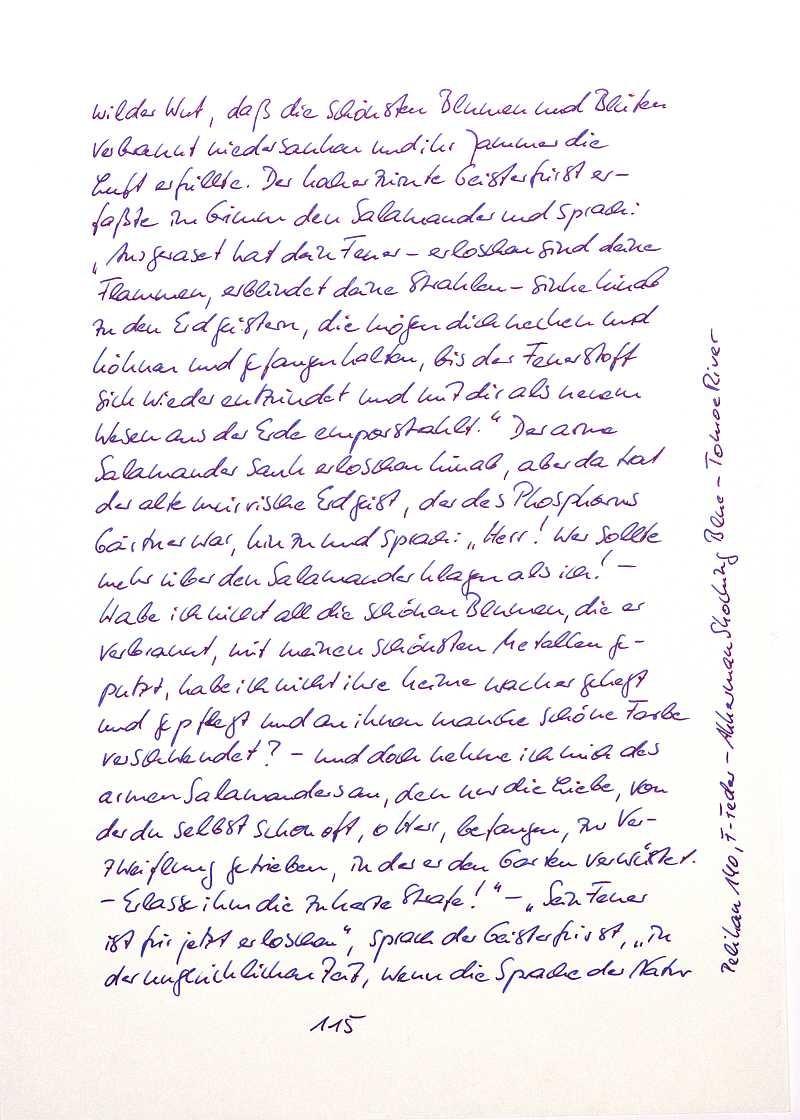 wilder Wut, daß die schönsten Blumen und Blüten
verbrannt niedersanken und ihr Jammer die
Luft erfüllte. Der hocherzürnte Geisterfürst er-
faßte im Grimm den Salamander und sprach:
„Ausgeraset hat dein Feuer – erloschen sind deine
Flammen, erblindet deine Strahlen – sinke hinab
zu den Erdgeistern, die mögen dich necken und
höhnen und gefangen halten, bis der Feuerstoff
sich wieder entzündet und mit dir als neuem
Wesen aus der Erde emporstrahlt.“ Der arme
Salamander sank erloschen hinab, aber da trat
der alte mürrische Erdgeist, der des Phosphorus
Gärtner war, hinzu und sprach: „Herr! Wer sollte
mehr über den Salamander klagen als ich! –
Habe ich nicht all die schönen Blumen, die er
verbrannt, mit meinen schönsten Metallen ge-
putzt, habe ich nicht ihre Keime wacker gehegt
und gepflegt und an ihnen manche schöne Farbe
verschwendet? – und doch nehme ich mich des
armen Salamanders an, den nur die Liebe, von
der du selbst schon oft, o Herr, befangen, zur Ver-
zweiflung getrieben, in der er den Garten verwüstet.
– Erlasse ihm die zu harte Strafe!“ – „Sein Feuer
ist für jetzt erloschen“, sprach der Geisterfürst, „in
der unglücklichen Zeit, wenn die Sprache der Natur
115
Pelikan 140, F-Feder – Akkerman Shocking Blue – Tomoe River